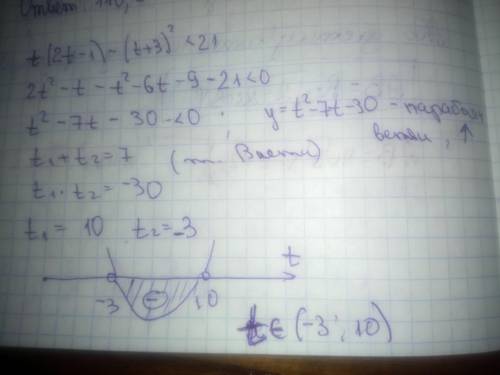 Ответ: 110,
t(2t-1)-(t+3)² <21
2t²-t-t²-6t-9-21<0
t²-7t-30<0; y=t²-7t-30 - парабола
ветви, ↑
t₁+t₂=7 (т. Виета)
t₁·t₂=-30
t₁= 10 t₂=-3
t
-3 - 10
t∈(-3; 10)